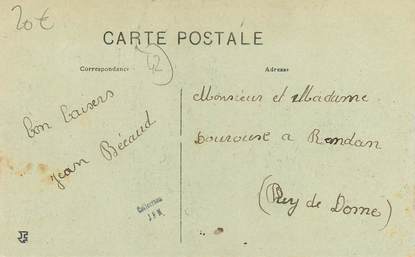 20€
CARTE POSTALE
Correspondance
42
Adresse
bon baisers
Jean Bécaud
Monsieur et Madame
a Randan
(Puy de Dome)
Collection
J.F.M.